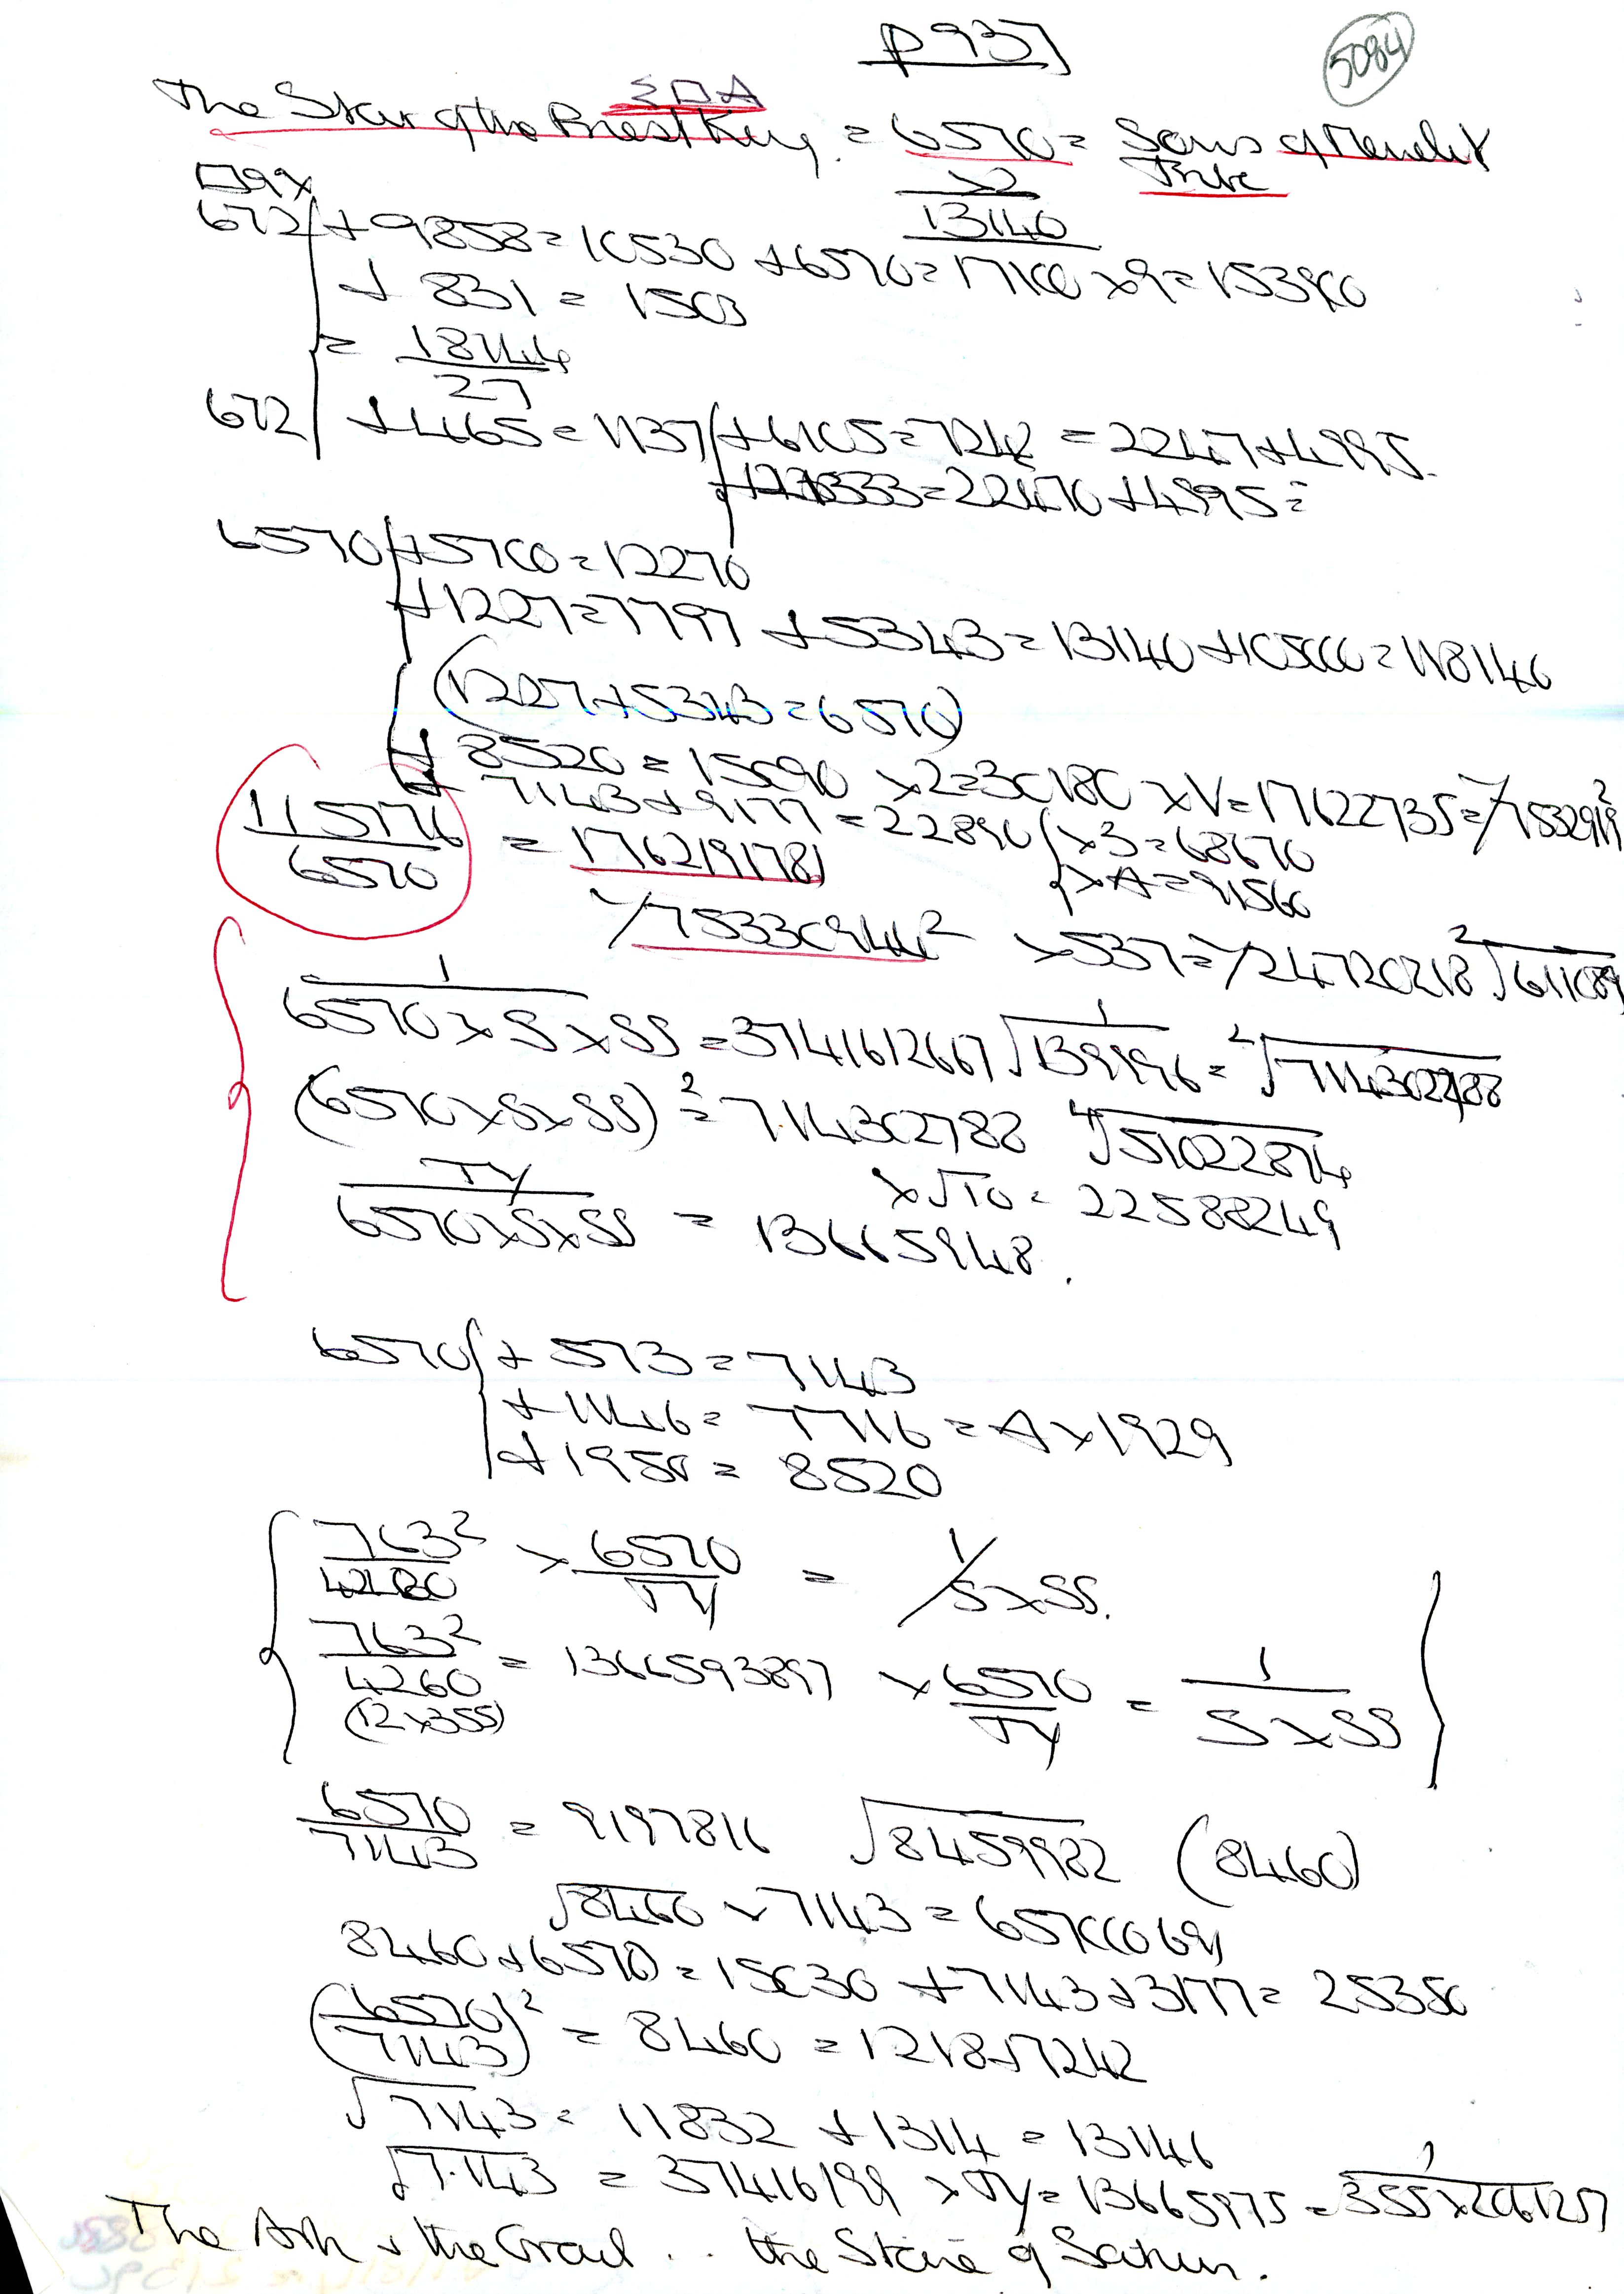 p937
5084
ΣΠΑ
The Star of the Priest King. = 6570 = Sons of
Tribe
x2
13140
672 + 9858 = 10530 + 6570 = 17100 x 9 = 153900
+ 831 = 1503
= 18144
27
672 + 465 = 1137 + 6105 = 7242 = 2247 + 4995.
= 22470 + 4995 =
6570 + 5700 = 12270
+ 1227 = 7797 + 5343 = 13140 + 105000 = 118140
(1227 + 5343 = 6570)
+ 8520 = 15090 x 2 = 30180 x V = 17622735 = Y7532919²
+ 7143 + 9177 = 22890 x 3 = 68670
x A = 91560
115776
6570
= 176219178
Y753309442 x 537 = Y24720218 ²√611089
1
6570 x S x SS = 3741612667 √1
139996 = ²√714302788
(6570 x S x SS)² = 714302788 ⁴√51022874
x √10 = 22588249
TY
6570 x S x SS = 13665948.
6570 + 573 = 7143
+ 1146 = 7716 = A x 1929
+ 1950 = 8520
763²
x 6570
TY
= 1/S x SS.
763²
4260
(12 x 355)
= 1366593897 x 6570
TY
= 1
S x SS
6570
7143
= 9197816 √8459982 (8460)
√8460 x 7143 = 657000691
8460 + 6570 = 15030 + 7143 + 3177 = 25350
(6570
7143)² = 8460 = 1218 + 7242
√7143 = 11832 + 1314 = 13146
√7.143 = 37416199 x TY = 13665975 = 1
355 x 206127
The Ark & the Grail .. the Stone of Saturn.